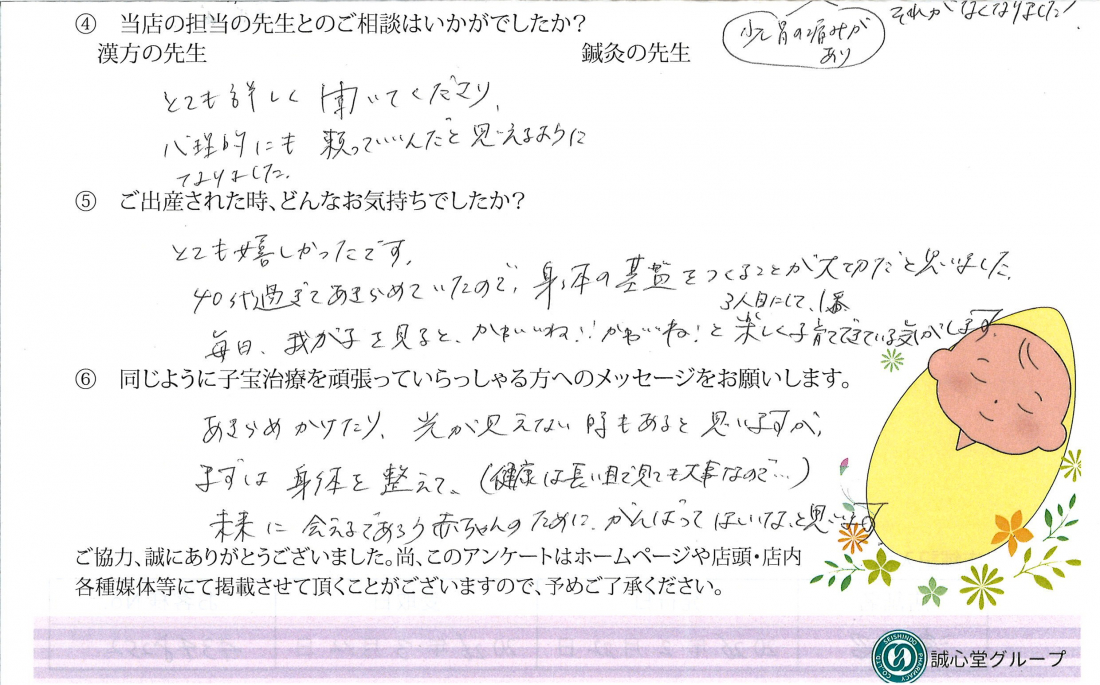 それがなくなりました!
少し胃の痛みが
あり
④ 当店の担当の先生とのご相談はいかがでしたか?
漢方の先生 鍼灸の先生
とても詳しく聞いてくださり、
心理的にも頼っていいんだと思えるように
なりました。
⑤ ご出産された時、どんなお気持ちでしたか?
とても嬉しかったです。
40代過ぎてあきらめていたので、身体の基盤をつくることが大切だと思いました。
3人目にして、1番
毎日、我が子を見ると、かわいいね!!かわいいね!と楽しく子育てできている気がします。
⑥ 同じように子宝治療を頑張っていらっしゃる方へのメッセージをお願いします。
あきらめかけたり、光が見えない時もあると思いますが、
まずは身体を整えて、(健康は長い目で見ても大事なので…)
未来に会えるであろう赤ちゃんのために、がんばってほしいな、と思います
ご協力、誠にありがとうございました。尚、このアンケートはホームページや店頭・店内
各種媒体等にて掲載させて頂くことがございますので、予めご了承ください。
SEISHINDO PHARMACY CO.,LTD.
誠心堂グループ